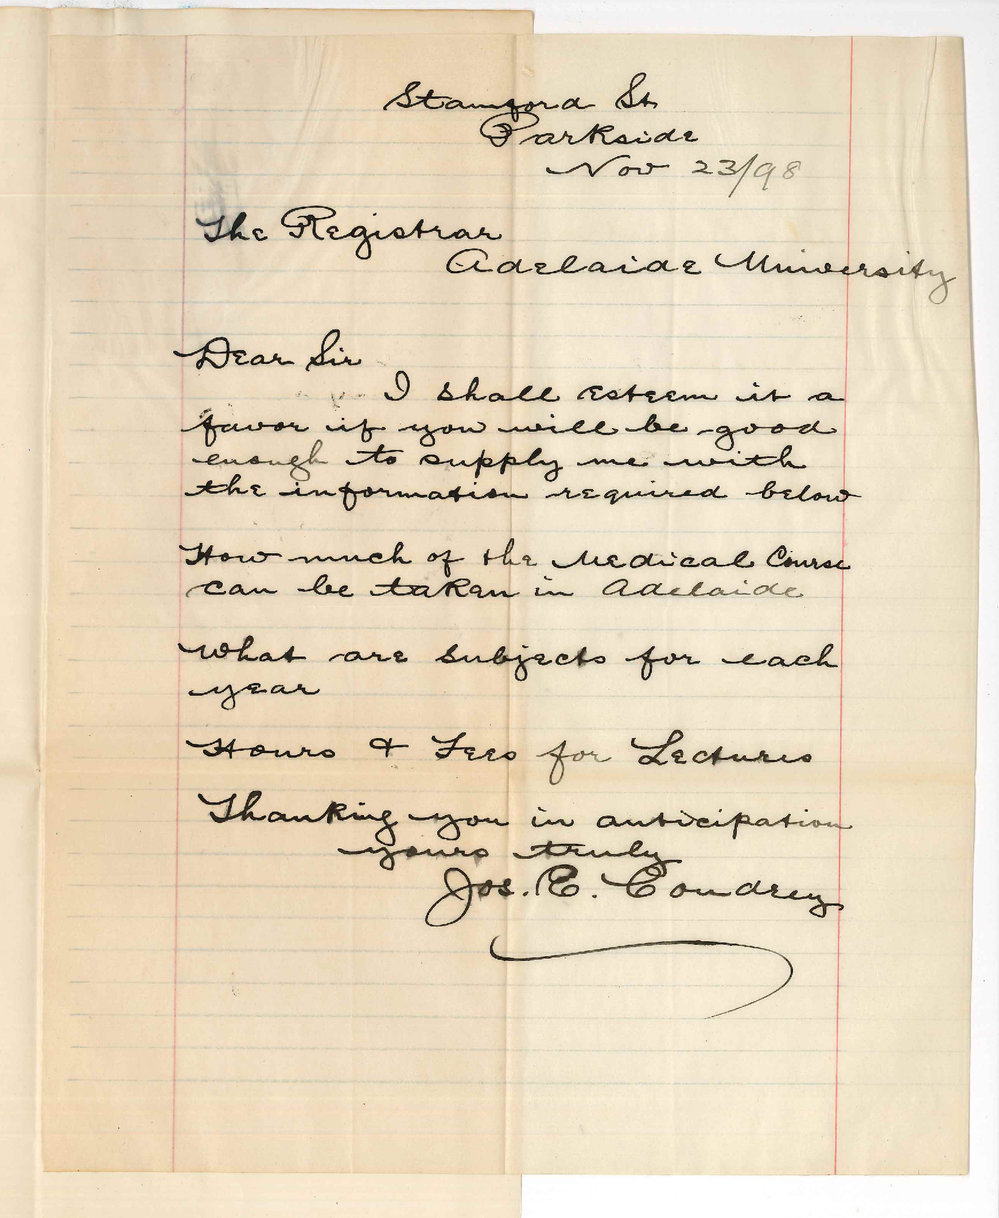 Stamford St
Parkside
Nov 23/98
The Registrar
Adelaide University
Dear Sir
I shall esteem it a
favor if you will be good
enough to supply me with
the information required below
How much of the Medical Course
can be taken in Adelaide
What are subjects for each
year
Hours & Fees for Lectures
Thanking you in anticipation
yours truly
Jos. E. Coudrey